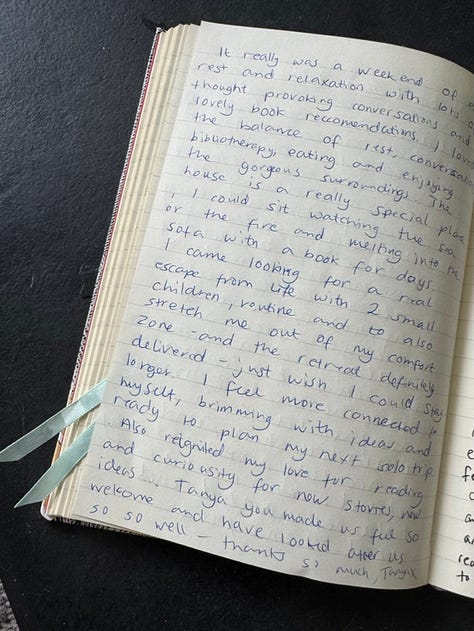 It really was a weekend of
rest and relaxation with lots of
thought provoking conversations and
lovely book reccomendations. I love
the balance of rest, conversation
bibliotherapy, eating and enjoying
the gorgeous surroundings. The
house is a really special place
, I could sit watching the sea
or the fire and melting into the
sofa with a book for days.
I came looking for a real
escape from life with 2 small
children, routine and to also
stretch me out of my comfort
zone - and the retreat definitely
delivered - just wish I could stay
longer. I feel more connected to
myself, brimming with ideas and
ready to plan my next solo trip
. Also reignited my love for reading
and curiousity for new stories, new
ideas... Tanya you made us feel so
welcome and have looked after us
so so well - thanks so
much, Tanya x
rea
to